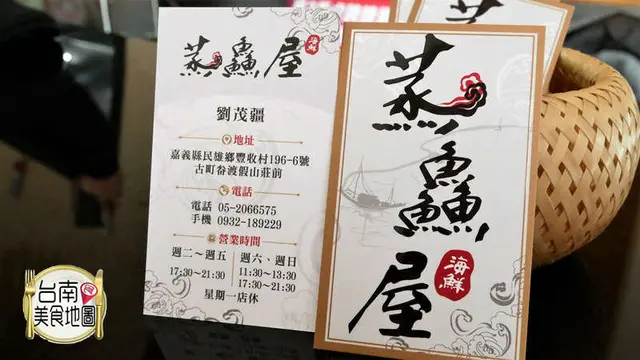 蒸鱻屋
海鮮
劉茂疆
地址
嘉義縣民雄鄉豐收村196-6號
古町眷渡假山莊前
電話
電話 05-2066575
手機 0932-189229
營業時間
週二~週五
17:30~21:30
週六、週日
11:30~13:30
17:30~21:30
星期一店休
蒸鱻屋
海鮮
台南
美食地圖